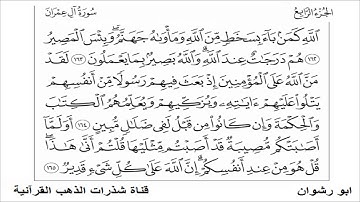 الجزء الرابع سورة آل عمران
ٱللَّهِ كَمَنۢ بَآءَ بِسَخَطٍ مِّنَ ٱللَّهِ وَمَأْوَىٰهُ جَهَنَّمُ ۚ وَبِئْسَ ٱلْمَصِيرُ
﴿١٦٢﴾ هُمْ دَرَجَٰتٌ عِندَ ٱللَّهِ ۗ وَٱللَّهُ بَصِيرٌۢ بِمَا يَعْمَلُونَ ﴿١٦٣﴾ لَقَدْ
مَنَّ ٱللَّهُ عَلَى ٱلْمُؤْمِنِينَ إِذْ بَعَثَ فِيهِمْ رَسُولًا مِّنْ أَنفُسِهِمْ
يَتْلُوا۟ عَلَيْهِمْ ءَايَٰتِهِۦ وَيُزَكِّيهِمْ وَيُعَلِّمُهُمُ ٱلْكِتَٰبَ
وَٱلْحِكْمَةَ وَإِن كَانُوا۟ مِن قَبْلُ لَفِى ضَلَٰلٍ مُّبِينٍ ﴿١٦٤﴾ أَوَلَمَّآ
أَصَٰبَتْكُم مُّصِيبَةٌ قَدْ أَصَبْتُم مِّثْلَيْهَا قُلْتُمْ أَنَّىٰ هَٰذَا ۖ
قُلْ هُوَ مِنْ عِندِ أَنفُسِكُمْ ۗ إِنَّ ٱللَّهَ عَلَىٰ كُلِّ شَىْءٍ قَدِيرٌ ﴿١٦٥﴾
ابو رشوان قناة شذرات الذهب القرآنية